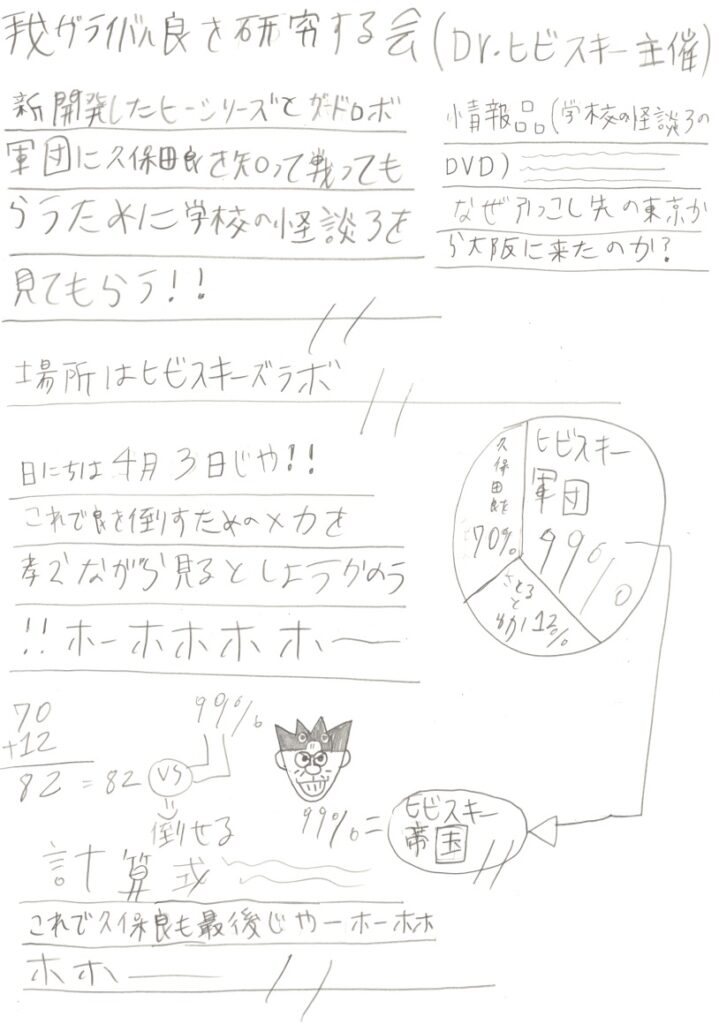 我がライバル良を研究する会(Dr.ヒビスキー主催)
新開発したヒーシリーズとガードロボ
軍団に久保田良を知って戦っても
らうために学校の怪談3を
見てもらう!!
情報品(学校の怪談3の
DVD)
なぜ引っこし先の東京か
ら大阪に来たのか?
場所はヒビスキーズラボ
日にちは4月3日じゃ!!
これで良を倒すためのメカを
考えながら見るとしようかのう
!!ホーホホホホー
久保田良を
70%
ヒビスキー
軍団
99%
さとると
12%
70
+12
82=82
VS
99%
倒せる
99%=
ヒビスキー
帝国
計算式
これで久保良も最後じゃーホーホホ
ホホー